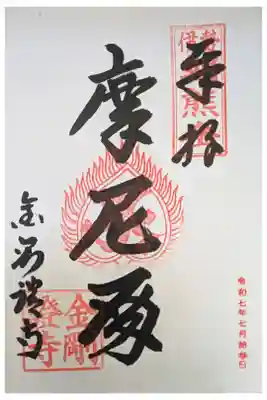 伊勢
熊
奉拝
摩尼殿
金剛證寺
金剛
證寺
令和七年七月